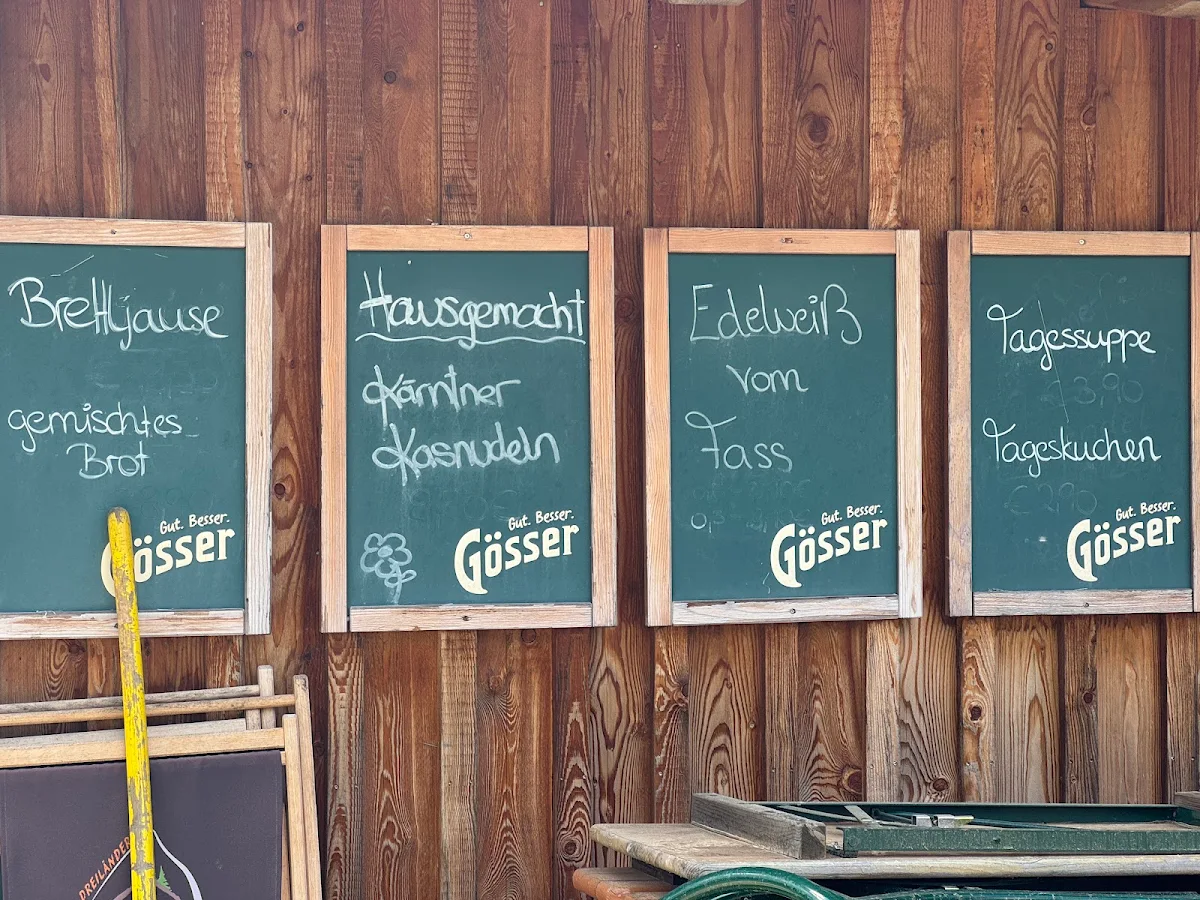 Brettljause
gemischtes
Brot
Gut. Besser.
Gösser
Hausgemacht
Kärntner
Kasnudeln
Gut. Besser.
Gösser
Edelweiß
vom
Fass
Gut. Besser.
Gösser
Tagessuppe
Tageskuchen
Gut. Besser.
Gösser
DREILÄNDER